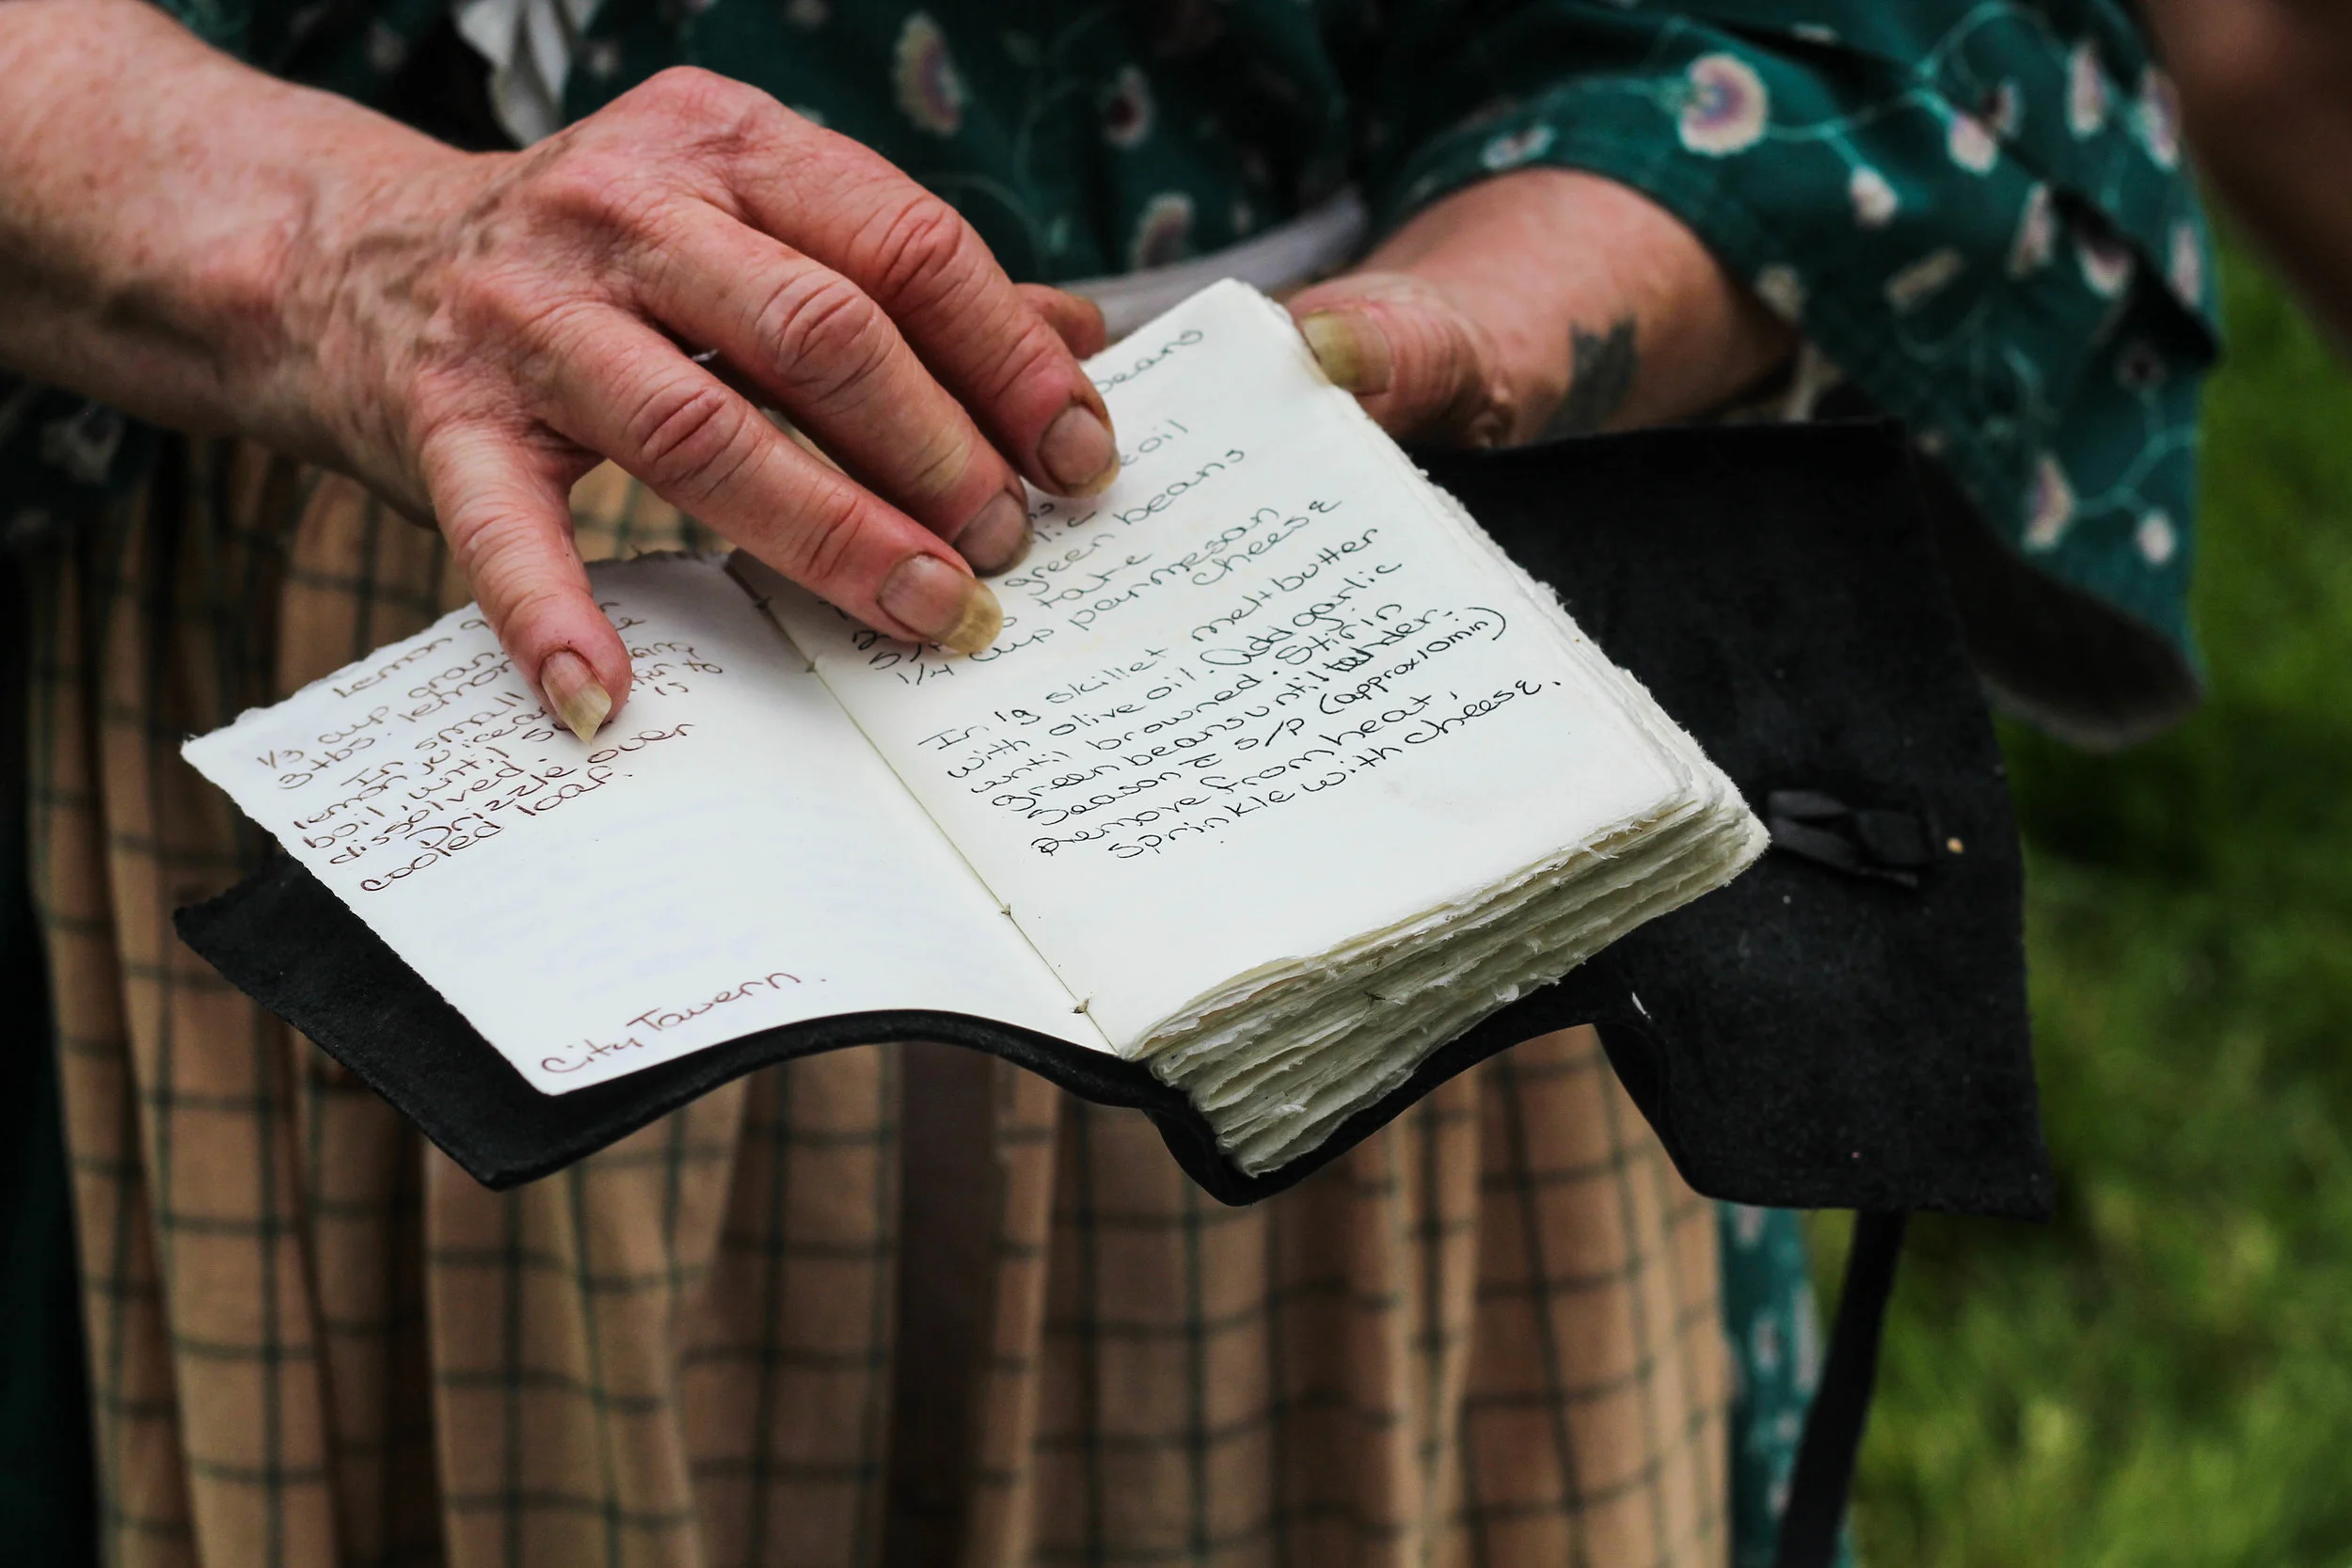 Lemon
1/3 cup
3 tbs. lemon
In small
lemon juice
boil, until
dissolved.
Drizzle over
cooled loaf.
City Tavern.
beans
oil
green beans
1/4 cup parmesan
cheese
In lg skillet melt butter
with olive oil. Add garlic
until browned. Stir in
green beans until tender.
Season c̄ s/p (approx 10 min)
Remove from heat,
sprinkle with cheese.